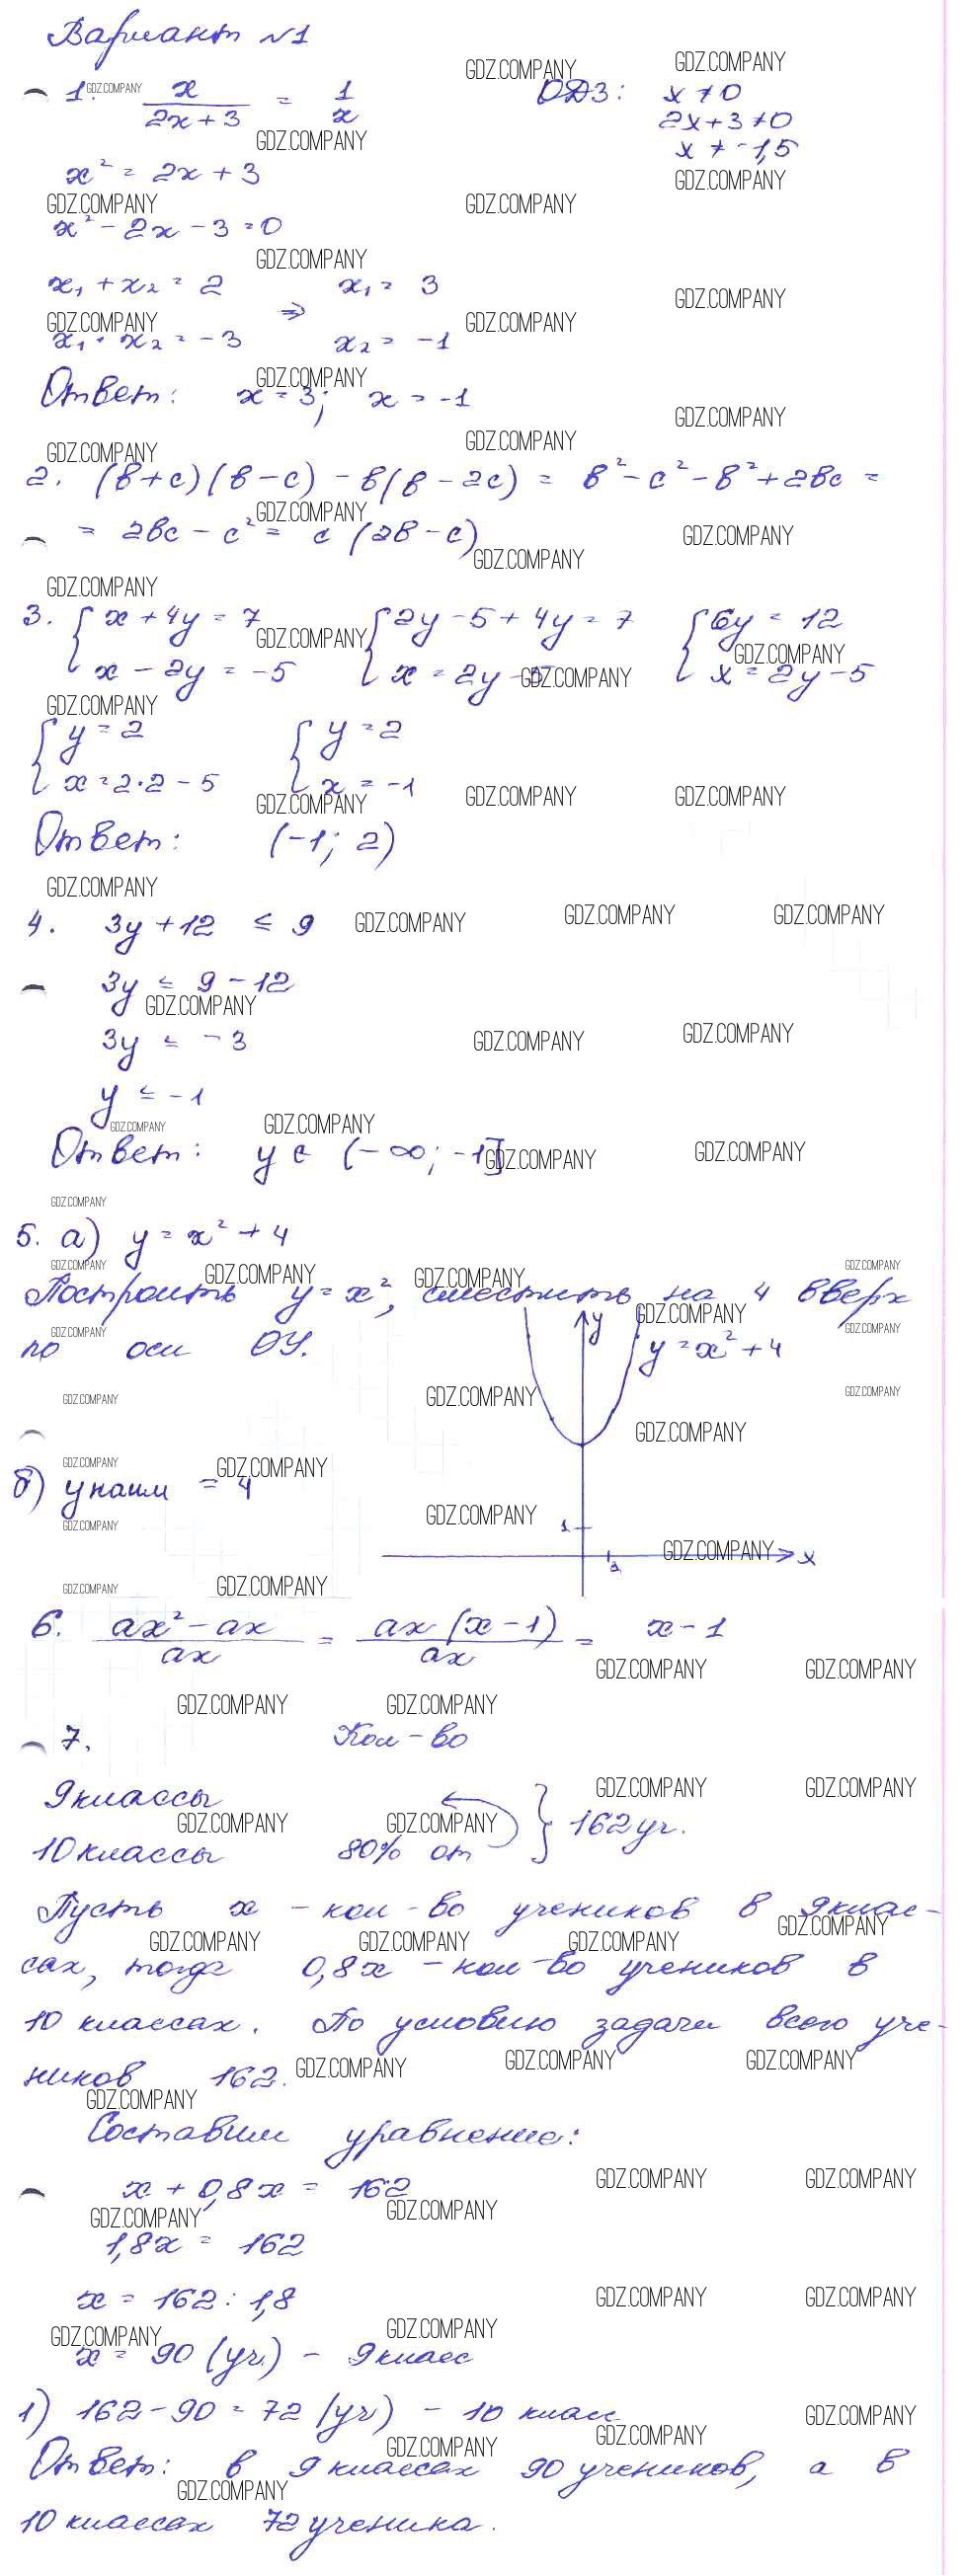 Вариант №1
1. x/(2x+3) = 1/x ОДЗ: x ≠ 0
2x+3 ≠ 0
x ≠ -1,5
x² = 2x + 3
x² - 2x - 3 = 0
x₁ + x₂ = 2 ⇒ x₁ = 3
x₁ · x₂ = -3 x₂ = -1
Ответ: x = 3; x = -1
2. (в+с)(в-с) - в(в-2с) = в² - с² - в² + 2вс =
= 2вс - с² = с(2в-с)
3. { x + 4y = 7 { 2y - 5 + 4y = 7 { 6y = 12
x - 2y = -5 x = 2y - 5 x = 2y - 5
{ y = 2 { y = 2
x = 2·2 - 5 x = -1
Ответ: (-1; 2)
4. 3y + 12 ≤ 9
3y ≤ 9 - 12
3y ≤ -3
y ≤ -1
Ответ: y ∈ (-∞; -1]
5. а) y = x² + 4
Построить y = x², сместить на 4 вверх
по оси OY.
y
y = x² + 4
б) y наим = 4
1
1
x
6. (ax² - ax)/ax = ax(x-1)/ax = x - 1
7. Кол-во
9 классы
10 классы 80% от } 162 уч.
Пусть x - кол-во учеников в 9 клас-
сах, тогда 0,8x - кол-во учеников в
10 классах. По условию задачи всего уче-
ников 162.
Составим уравнение:
x + 0,8x = 162
1,8x = 162
x = 162 : 1,8
x = 90 (уч) - 9 класс
1) 162 - 90 = 72 (уч) - 10 класс
Ответ: в 9 классах 90 учеников, а в
10 классах 72 ученика.
GDZ.COMPANY